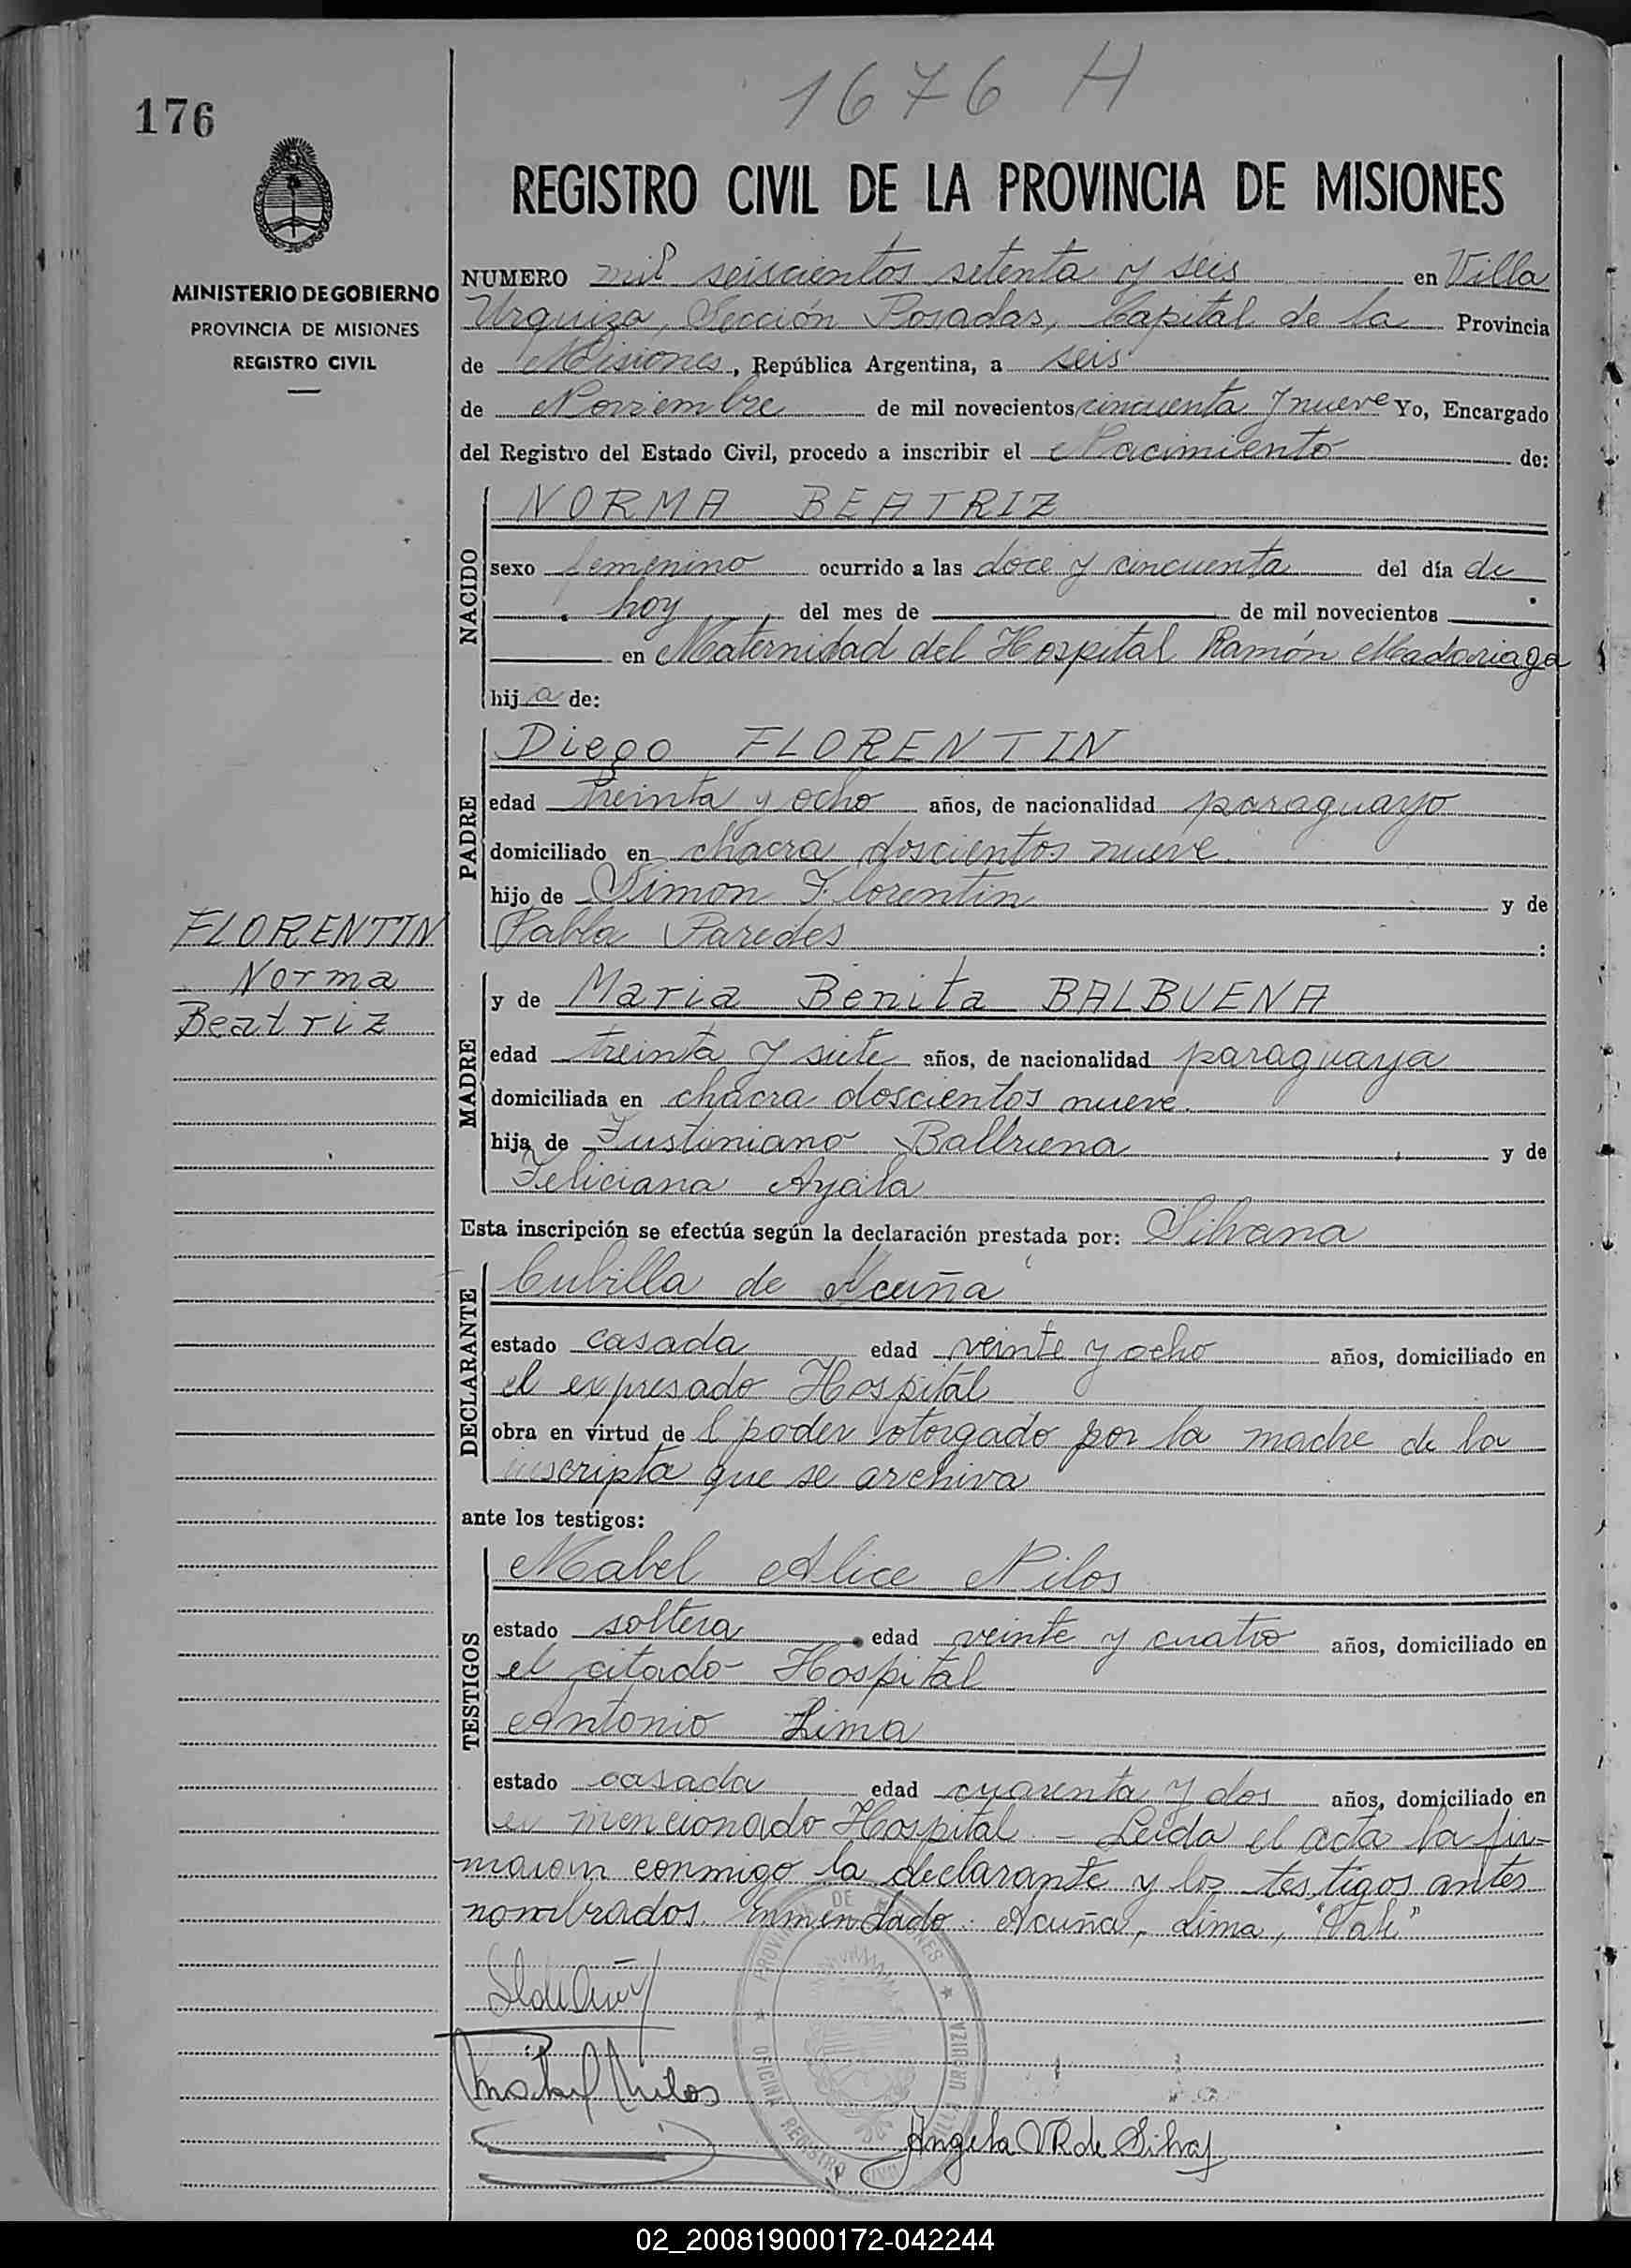 1676 H
176
REGISTRO CIVIL DE LA PROVINCIA DE MISIONES
MINISTERIO DE GOBIERNO
PROVINCIA DE MISIONES
REGISTRO CIVIL
NUMERO mil seiscientos setenta y seis en Villa
Urquiza, Sección Posadas, Capital de la Provincia
de Misiones, República Argentina, a seis
de Noviembre de mil novecientos cincuenta y nueve Yo, Encargado
del Registro del Estado Civil, procedo a inscribir el Nacimiento de:
NACIDO
NORMA BEATRIZ
sexo femenino ocurrido a las doce y cincuenta del día de
hoy del mes de de mil novecientos
en Maternidad del Hospital Ramón Madariaga
hija de:
PADRE
Diego FLORENTIN
edad treinta y ocho años, de nacionalidad paraguayo
domiciliado en chacra doscientos nueve
hijo de Simon Florentin y de
Pabla Paredes :
FLORENTIN
Norma
Beatriz
MADRE
y de Maria Benita BALBUENA
edad treinta y siete años, de nacionalidad paraguaya
domiciliada en chacra doscientos nueve.
hija de Justiniano Balbuena y de
Feliciana Ayala
Esta inscripción se efectúa según la declaración prestada por: Silvana
DECLARANTE
Cubilla de Acuña
estado casada edad veinte y ocho años, domiciliado en
el expresado Hospital
obra en virtud del poder otorgado por la madre de la
inscripta que se archiva
ante los testigos:
TESTIGOS
Mabel Alice Nilos
estado soltera edad veinte y cuatro años, domiciliado en
el citado Hospital
Antonio Lima
estado casada edad cuarenta y dos años, domiciliado en
el mencionado Hospital. - Leida el acta la fir=
maron conmigo la declarante y los testigos antes
nombrados. Enmendado: Acuña, Lima, "Vale"
PROVINCIA DE MISIONES
OFICINA REGISTRO CIVIL
VILLA URQUIZA
Mabel Nilos
Angela VR de Silva
02_200819000172-042244